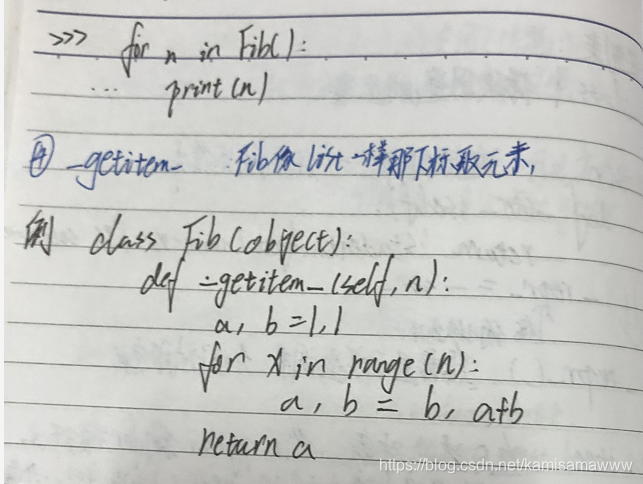 >>> for n in Fib():
... print(n)
④ _getitem_ Fib像list一样那下标取元素,
例 class Fib(object):
def _getitem_(self, n):
a, b = 1, 1
for x in range(n):
a, b = b, a+b
return a
https://blog.csdn.net/kamisamawww